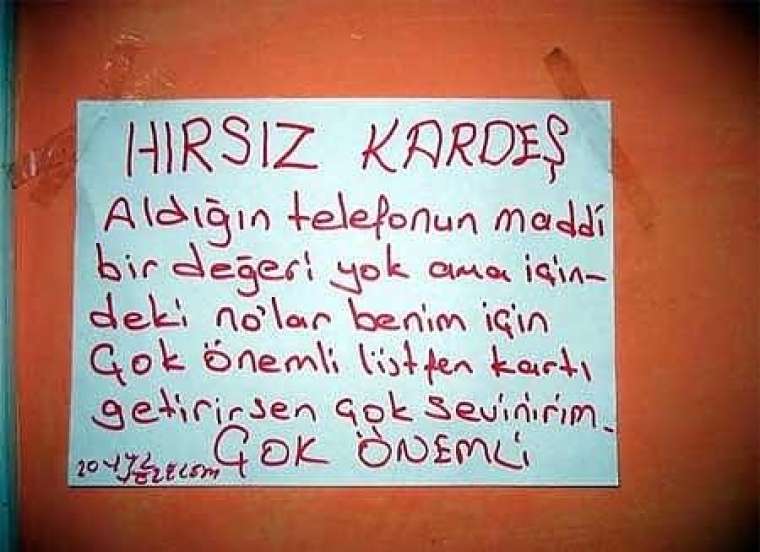 HIRSIZ KARDEŞ
Aldığın telefonun maddi
bir değeri yok ama için-
deki no'lar benim için
Çok önemli lütfen kartı
getirirsen çok sevinirim.
ÇOK ÖNEMLİ